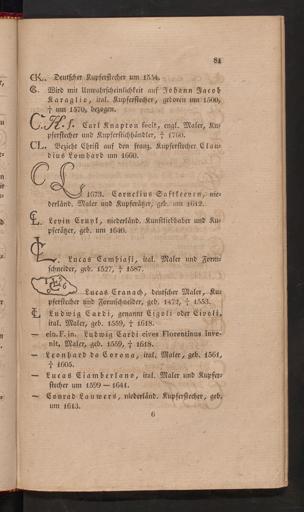 81
CK. Deutscher Kupferstecher um 1554.
C. Wird mit Unwahrscheinlichkeit auf Johann Jacob
Karaglio, ital. Kupferstecher, geboren um 1500,
† um 1570, bezogen.
C. K. f. Carl Knapton fecit, engl. Maler, Ku-
pferstecher und Kupferstichhändler, † 1760.
CL. Bezieht Christ auf den franz. Kupferstecher Clau-
dius Lombard um 1660.
CL
1673. Cornelius Saftleeven, nie-
derländ. Maler und Kupferätzer, geb. um 1612.
CL Levin Cruyl, niederländ. Kunstliebhaber und Ku-
pferätzer, geb. um 1640.
CL. Lucas Cambiasi, ital. Maler und Form-
schneider, geb. 1527, † 1587.
Lucas Cranach, deutscher Maler, Ku-
pferstecher und Formschneider, geb. 1472, † 1553.
CL Ludwig Cardi, genannt Cigoli oder Civoli,
ital. Maler, geb. 1559, † 1618.
— ein. F. in. Ludwig Cardi eives Florentinus inve-
nit, Maler, geb. 1559, † 1618.
— Leonhard da Corona, ital. Maler, geb. 1561,
† 1605.
— Lucas Ciamberlano, ital. Maler und Kupfer-
stecher um 1599 — 1641.
— Conrad Lauwers, niederländ. Kupferstecher, geb.
um 1613.
6